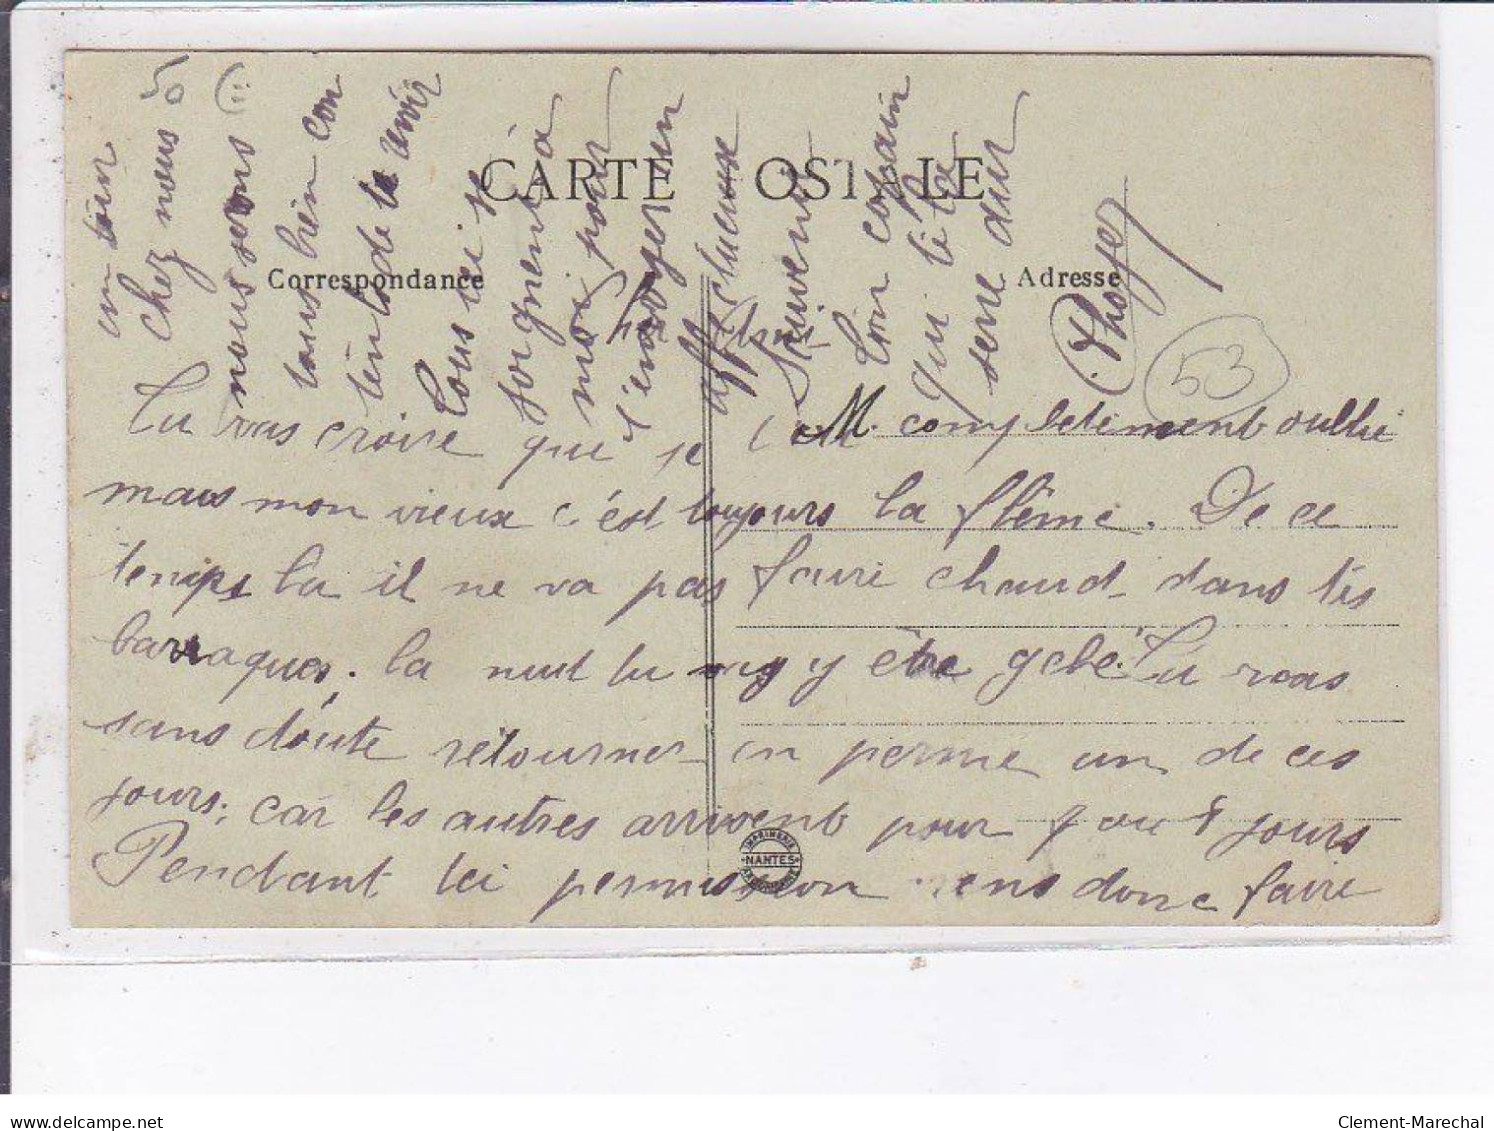 CARTE POSTALE
Correspondance
Adresse
Ami
Tu vas croire que je t'ai complètement oublié
mais mon vieux c'est toujours la flême. De ce
temps la il ne va pas faire chaud dans les
barraques; la nuit tu vas y être gelé. Tu vas
sans doute retourner en perme un de ces
jours; car les autres arrivent pour 7 ou 8 jours
Pendant ta permission viens donc faire
un tour
chez nous
nous serons
tous bien con
tents de te revoir
Tous ici se
joignent à
moi pour
t'envoyer un
affectueux
Souvenir
Ton copain
qui te la
serre dur
50
53
IMPRIMERIE
NANTES
Clement-Marechal
www.delcampe.net